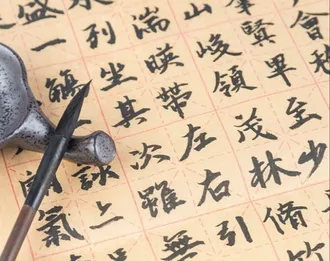 會
賢畢至少
山峻領茂林脩竹
湍暎帶左右引
列坐其次雖無
盛一觴詠
氣